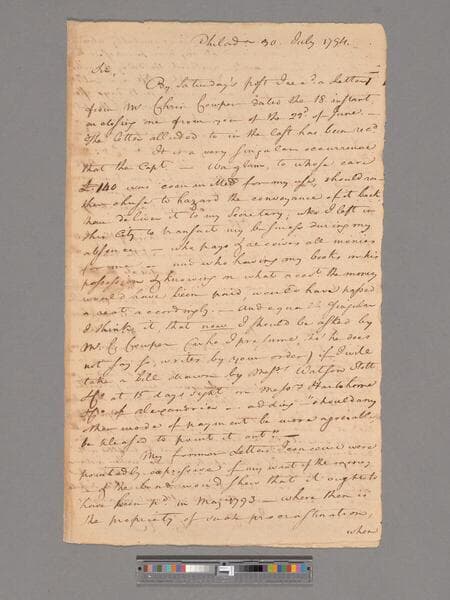 Philad a 30 July 1794.
Sir,
By Saturday's post I rec'd a letter
from Mr. Chris'r Cowper dated the 18 instant,
enclosing me from you of the 29th of June. —
The letter alluded to in the last has been rec'd
It is a very singular occurrence
that the Capt. — to whose care
£.140 was committed for my use, should ra-
ther chuse to hazard the conveyance of it back,
than deliver it to my Secretary; who I left in
this City to transact my business during my
absence; — who pays & receives all monies
for me — and who having my books in his
possession & knowing on what acc't the money
would have been paid, would have passed
a rec't accordingly. — And equally singular
I think it, that now I should be asked by
Mr. C. Cowper (who I presume, tho' he does
not say so, writes by your order) if I will
take a bill drawn by Mess'rs Watson Stott
& Co. at 15 days sight on Mess'rs Hartshorne
& Co. of Alexandria — adding "should any
other mode of payment be more agreeable
be pleased to point it out". —
My former letters I conceive were
pointedly expressive of my want of the money
— & the bond would shew that it ought to
have been p'd in May 1793 — where then is
the propriety of such procrastination,
when